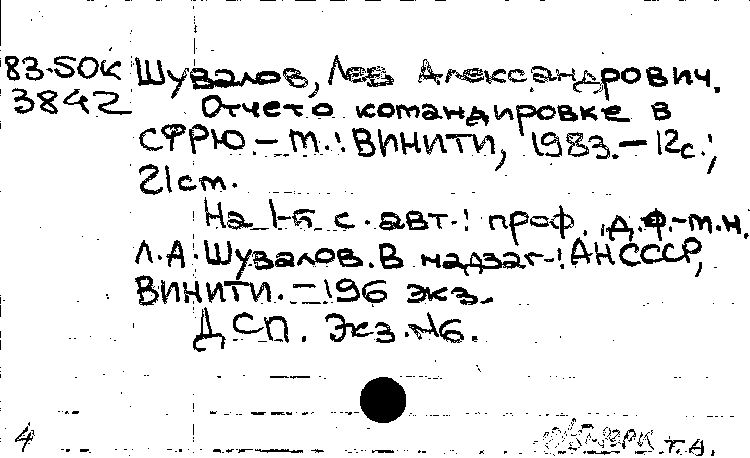 83-50К Шувалов, Лев Александрович.
3842 Отчет о командировке в
СФРЮ. - М.: ВИНИТИ, 1983. - 12с.;
21см.
На 1-й с. авт.: проф., д.ф.-м.н.
Л.А. Шувалов. В надзаг.: АН СССР,
ВИНИТИ. - 196 экз.
ДСП. Экз. №6.
4 т.д.